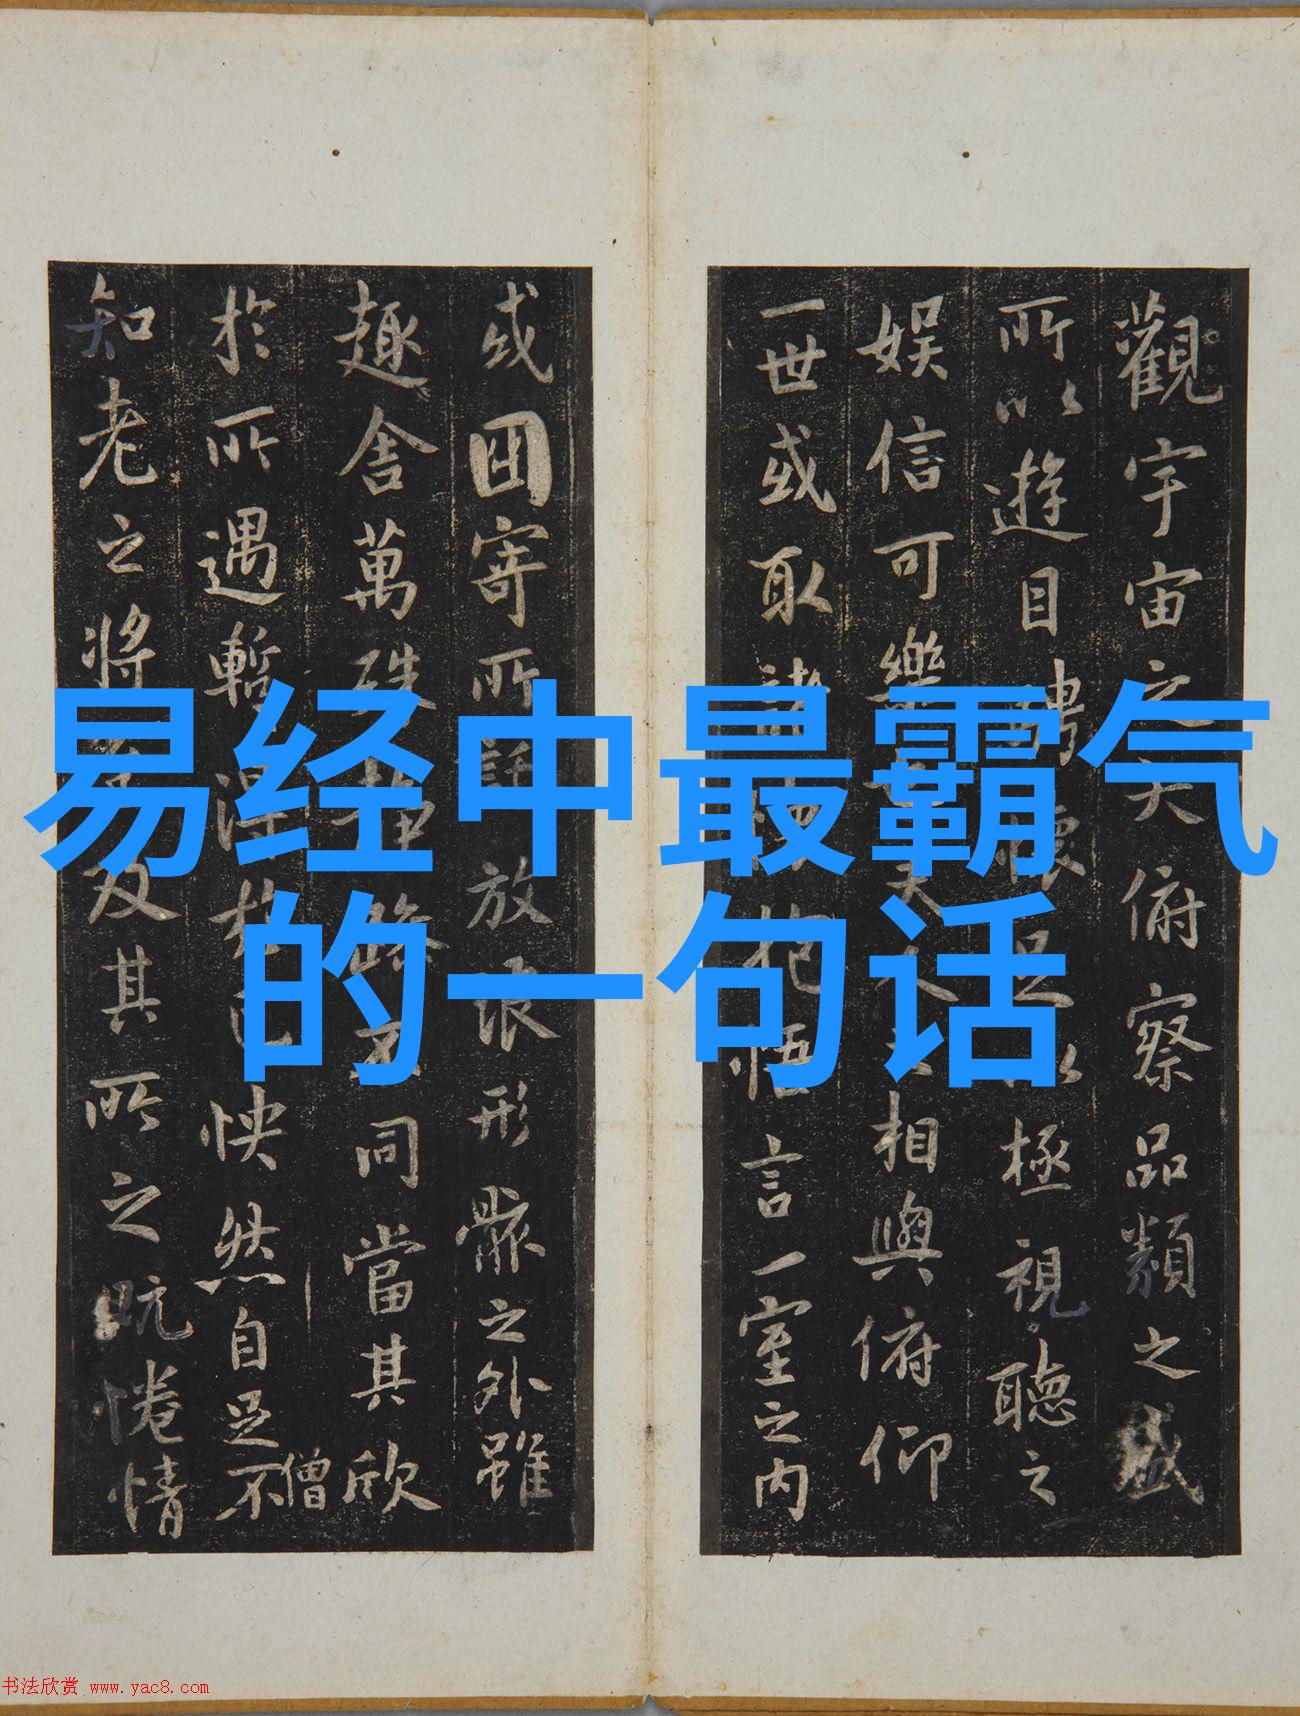 易经中最霸气
的一句话
觀宇宙之大俯察品類之盛
所以遊目騁懷足以極視聽之
娛信可樂也夫人之相與俯仰
一世或取諸懷抱悟言一室之內
或因寄所託放浪形骸之外雖
趣舍萬殊靜躁不同當其欣
於所遇暫得於己快然自足不
僧
知老之將至及其所之既惓情
书法欣赏 www.yac8.com